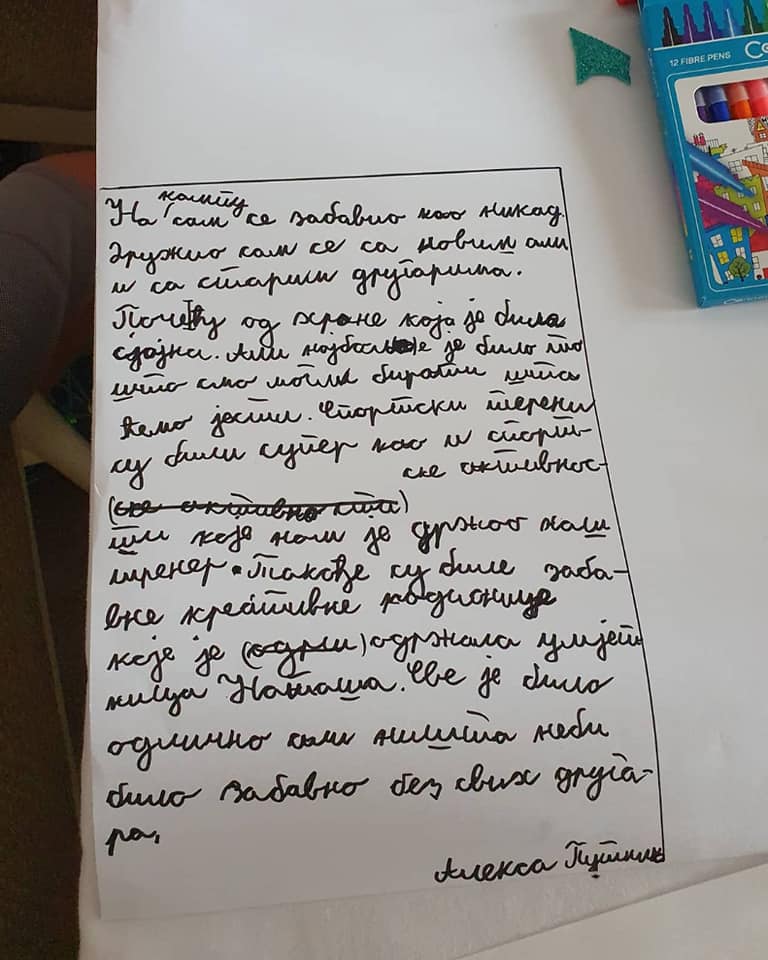 12 FIBRE PENS
Co
кампу
На сам се забавио као никад.
Дружио сам се са новим али
и са старим другарима.
Почећу од хране која је била
сјајна. Али најбоље је било то
што смо могли бирати шта
ћемо јести. Спортски терени
су били супер као и спорт-
ске активнос-
(ске активности)
ти које нам је држао наш
тренер. Такође су биле заба-
вне креативне радионице
које је (одрш) одржала умјет-
ница Наташа. Све је било
одлично али ништа неби
било забавно без свих друга-
ра.
Алекса Путник